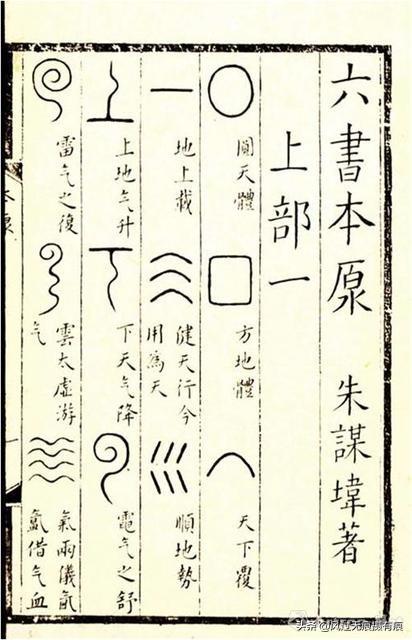 六書本原 朱謀㙔著
上部一
圓天體
方地體
天下覆
地上載
健天行今
用為天
順地勢
上地气升
下天气降
電气之舒
雷气之復
雲太虛游
气
氣兩儀氤
氳借气血
头条